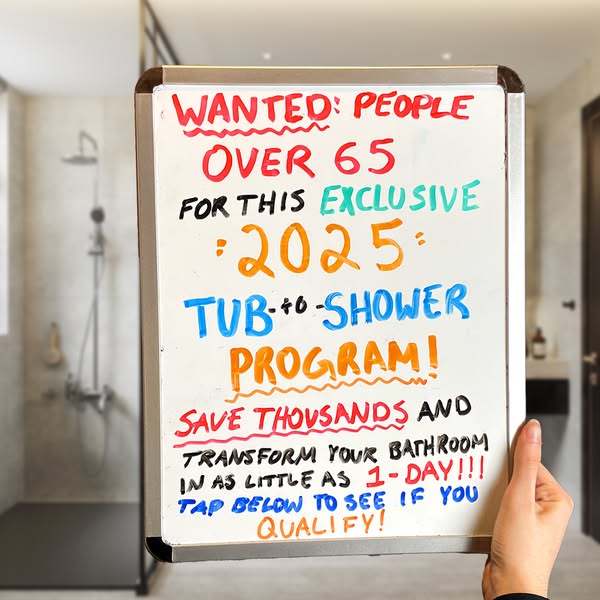 WANTED: PEOPLE
OVER 65
FOR THIS EXCLUSIVE
:2025:
TUB-to-SHOWER
PROGRAM!
SAVE THOUSANDS AND
TRANSFORM YOUR BATHROOM
IN AS LITTLE AS 1-DAY!!!
TAP BELOW TO SEE IF YOU
QUALIFY!